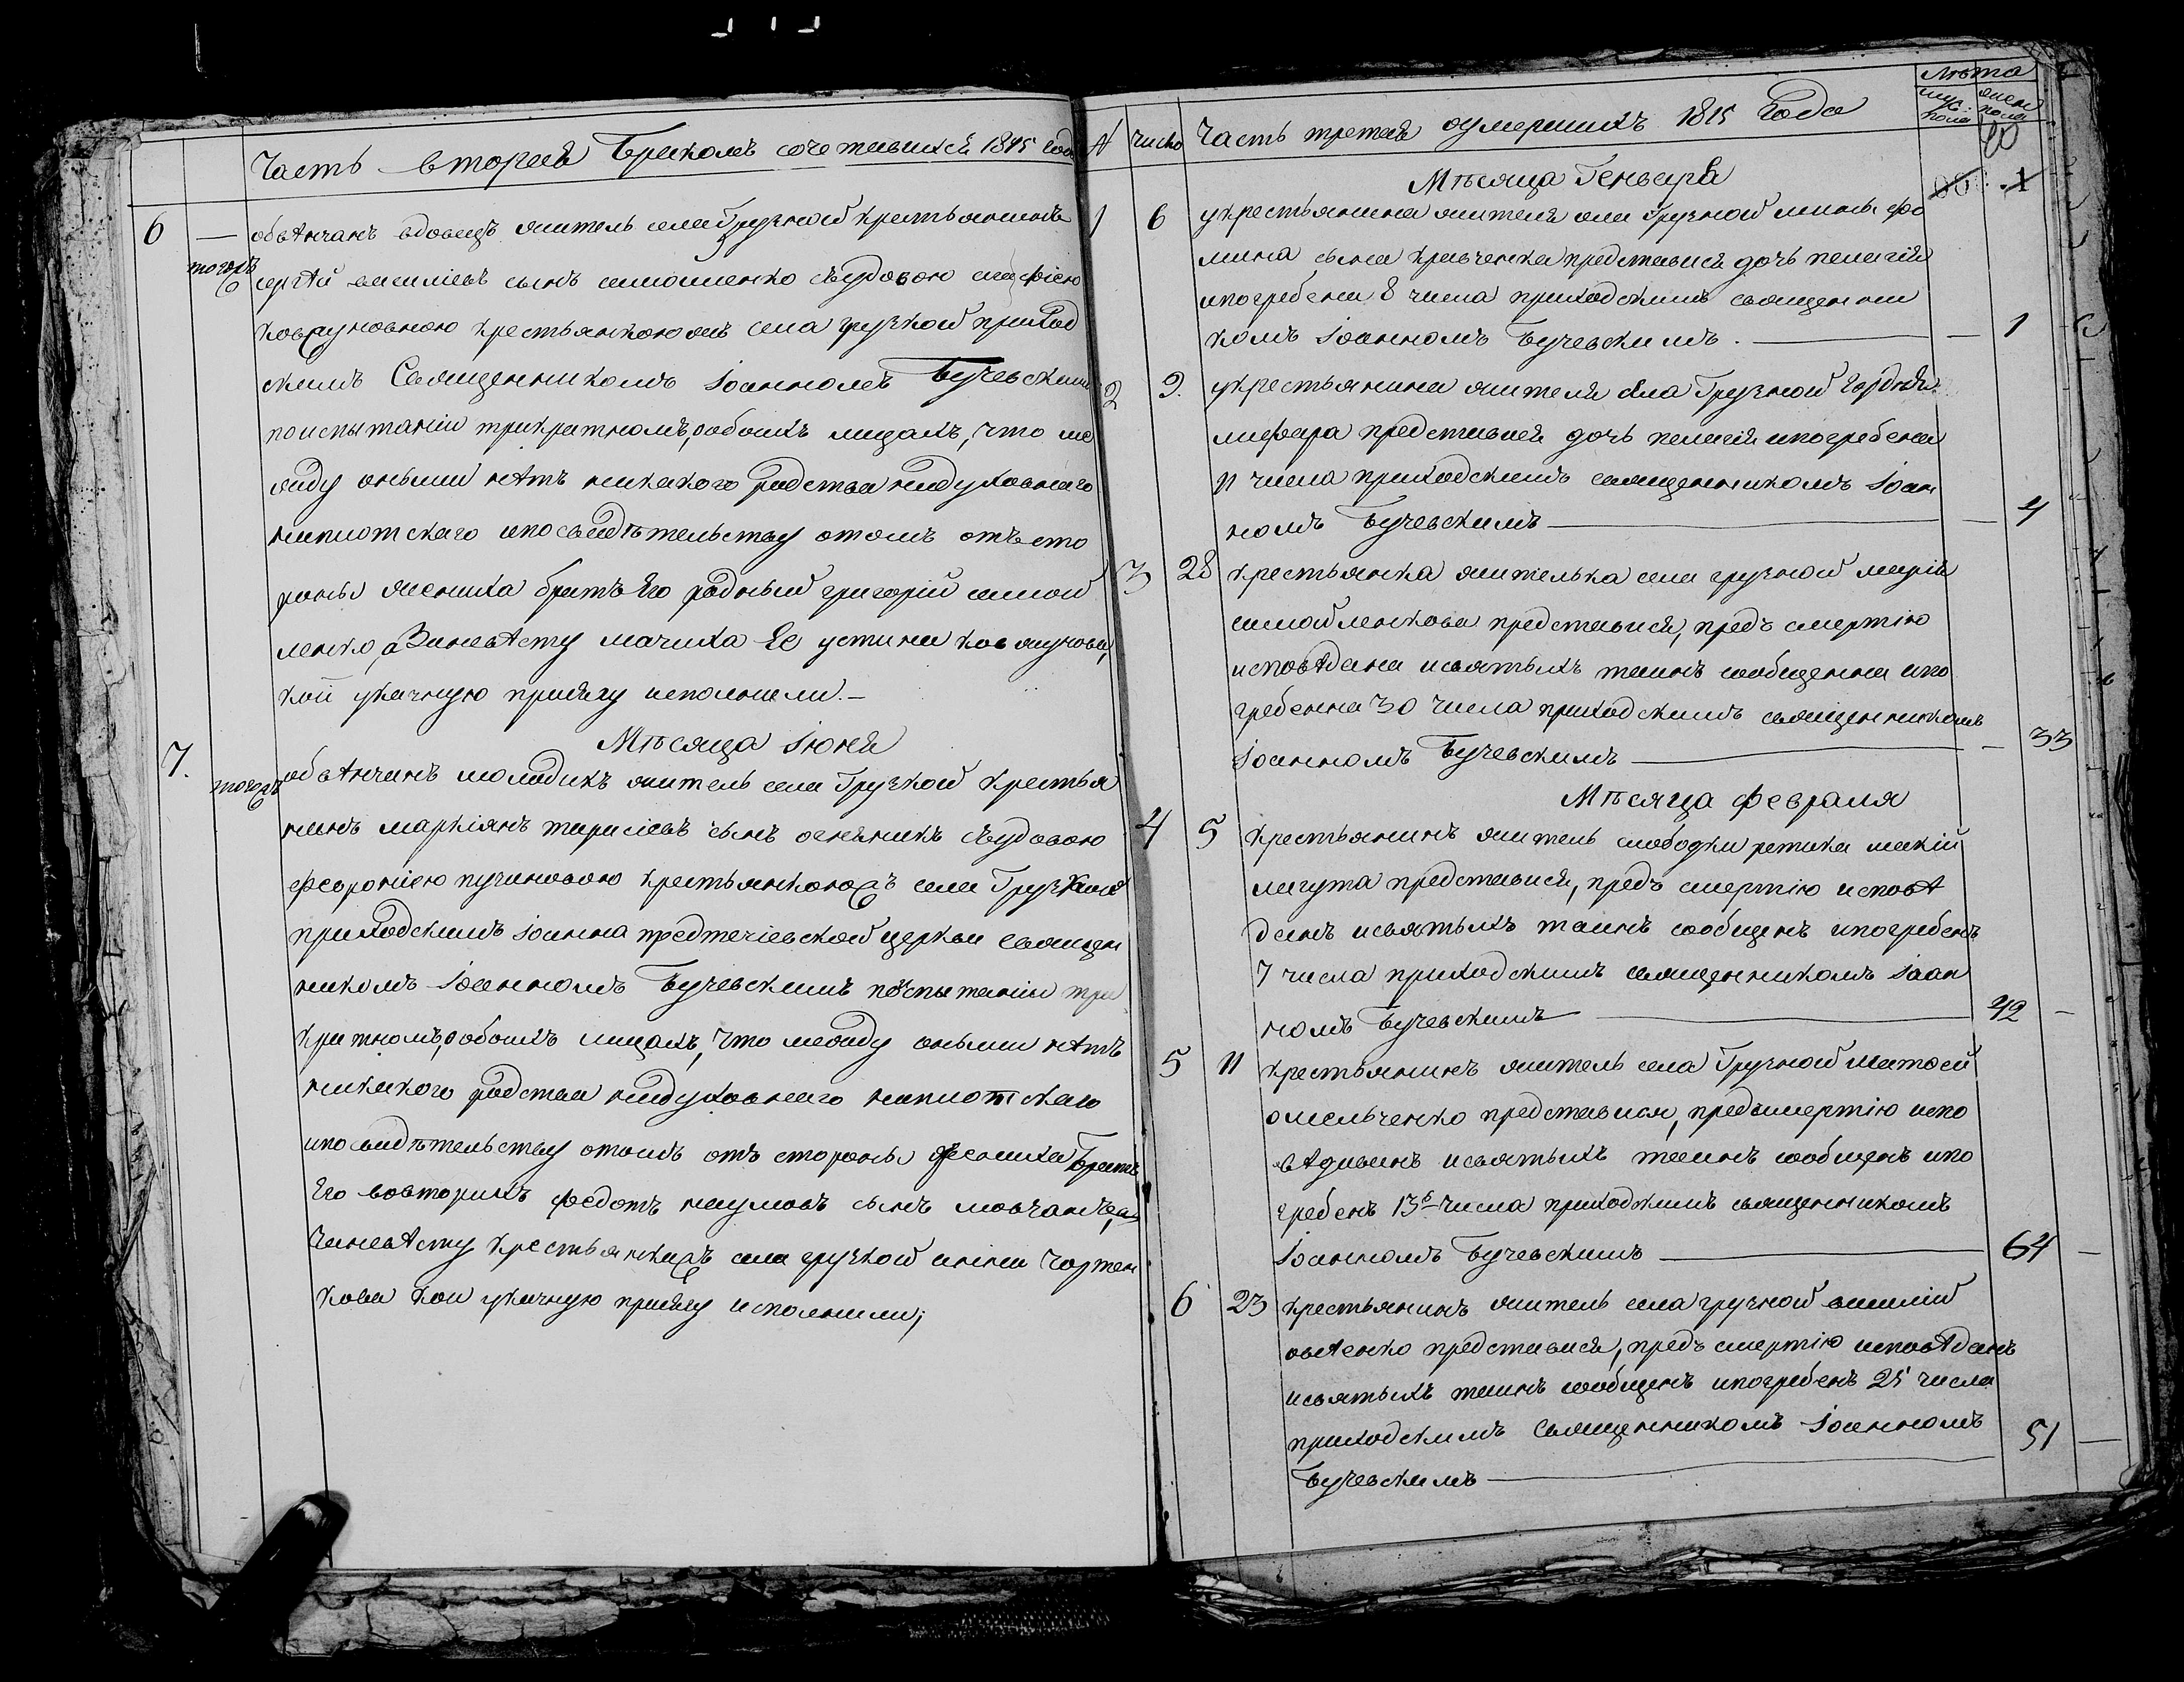 Часть вторая бракомъ сочетавшихся 1815 года
6 — обвѣнчанъ вдовецъ житель села Грузкой крестьянинъ
тогожъ сергѣй василіевъ сынъ самойленко съ вдовою
ковжуновною крестьянкоюжъ села грузкой приход
скимъ Священникомъ Іоанномъ Бучевскимъ
по испытаніи трикратномъ, о обоихъ лицахъ, что ме
жду оными нѣтъ никакого родства ни духовнаго
ни плотскаго и по свидѣтельству о томъ отъ сто
роны жениха братъ Его родный григорій самой
ленко, а За невѣсту мачиха Ее устина ковжунова,
кои указную присягу исполнили. —
Мѣсяца Іюня
7. обвѣнчанъ молодикъ житель села Грузкой крестья
тогожъ нинъ маркіянъ тарасіевъ сынъ съ вдовою
феврониею пугиновою крестьянкоюжъ села Грузкой
приходскимъ Іоанна предтечіевской церкви священ
никомъ Іоанномъ Бучевскимъ по испытаніи три
кратномъ, о обоихъ лицахъ, что между оными нѣтъ
никакого родства ни духовнаго ни плотскаго
и по свидѣтельству о томъ отъ стороны жениха братъ
Его вовторыхъ федотъ наумовъ сынъ мовчанъ, а
За невѣсту крестьянкажъ села грузкой анна чортен
кова кои указную присягу исполнили;
№ Число Часть третая о умершихъ 1815 Года Лѣта
муж. пола жен. пола
20
Мѣсяца Генваря
1 6 у крестьянина жителя села Грузкой мины фо
мина сына кравченка преставися дочь пелагія
и погребена 8 числа приходскимъ священни
комъ Іоанномъ Бучевскимъ. — — 1
2 9. у крестьянина жителя села Грузкой
преставися дочь пелагія и погребена
11 числа приходскимъ священникомъ Іоан
номъ Бучевскимъ — — 4
3 28 крестьянка жителька села грузкой марія
самойленкова преставися, предъ смертію
исповѣдана и святыхъ таинъ сообщенна и по
гребенна 30 числа приходскимъ священникомъ
Іоанномъ Бучевскимъ — — 33
Мѣсяца февраля
4 5 крестьянинъ житель слободки ретика
лагута преставися, предъ смертію исповѣ
данъ и святыхъ таинъ сообщенъ и погребенъ
7 числа приходскимъ священникомъ Іоан
номъ Бучевскимъ — 42 —
5 11 крестьянинъ житель села Грузкой Матѳей
омельченко преставися, предъ смертію испо
вѣдыванъ и святыхъ таинъ сообщенъ и по
гребенъ 13го числа приходскимъ священникомъ
Іоанномъ Бучевскимъ — 64 —
6 23 крестьянинъ житель села грузкой василій
преставися, предъ смертію исповѣданъ
и святыхъ таинъ сообщенъ и погребенъ 25 числа
приходскимъ Священникомъ Іоанномъ
Бучевскимъ — 51 —